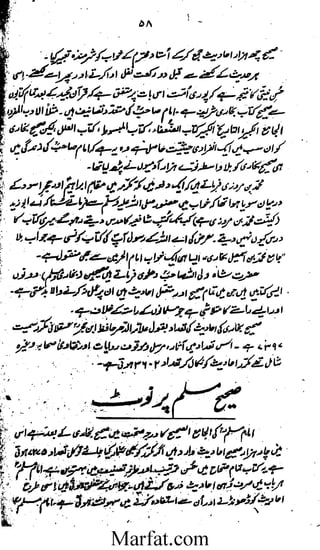 ۵۸
صحیح چھ ہزار احادیث جمع کر کے استاد محترم کے خواب کو شرمندہ تعبیر کیا۔
ہر حدیث کے لکھنے سے قبل دو رکعت نفل ادا کرتے اور پھر اسے لکھتے۔ اسی
حسن نیتی کا نتیجہ ہے کہ پوری امت اس بات پر متفق ہے کہ قرآن مجید کے بعد تمام کتابوں
سے صحیح کتاب بخاری شریف ہے۔ امام صاحب کی متعدد تصانیف ہیں۔ مثلاً الادب المفرد
الجامع الکبیر التاریخ الکبیر کتاب الضعفاء، کتاب المبسوط، کتاب العلل، لیکن صحیح بخاری
کو ان سب میں ایک انفرادی حیثیت حاصل ہے وہ یہ ہے کہ امام صاحب کی زندگی میں
ہی صحیح بخاری کو بلا واسطہ نوے ہزار آدمیوں نے پڑھ لیا تھا۔
محمد بن مروزی فرماتے ہیں کہ ایک دفعہ میں مکہ مکرمہ میں مقام ابراہیم اور حجر اسود کے
درمیان سویا ہوا تھا کہ خواب میں حضور صلی اللہ علیہ وسلم نے فرمایا کہ اے ابو زید
محمد بن مروزی کب تک کتب شافعیہ کا درس دیتے رہو گے میری کتاب کا
درس کیوں نہیں دیتے۔ عرض کی اے اللہ کے رسول آپ کی کتاب کونسی ہے جواب ملا
جامع محمد بن اسمٰعیل بخاری۔ ایسا ہی ایک خواب امام الحرمین سے بھی منقول ہے۔
حضرت شاہ ولی اللہ صاحب دہلوی فرماتے ہیں صحیحین (بخاری و مسلم) دونوں
ایسی کتابیں ہیں جن میں تمام صحیح اور متصل احادیث ہیں ان پر عمل نہ کرنے والا بدعتی ہے۔
اور ایسے راستے کا متلاشی ہے جو مسلمانوں کے راستے کے خلاف ہے۔
صحیح بخاری کی احادیث کی تعداد بقول علامۃ الدہر حافظ ابن حجر عسقلانی مکررات سمیت
۷۳۹۷ ہے۔ اس تعداد میں آثار، مرسل و موقوف روایات اور فتاویٰ صحابہ وغیرہ
شامل نہیں مکرر احادیث کو نکال کر تعداد ۲۶۰۲ ہوتی ہے۔
صحیح مسلم پر نوٹ
امام مسلم کی الجامع الصحیح کا درجہ صحت میں صحیح بخاری کے بعد ہے اس
میں چار ہزار صحیح احادیث وارد ہیں اگر مکرر کو بھی شمار کیا جائے تو کل تعداد ۷۲۷۵ ہوتی
ہے یہ کتاب تمام صحاح میں حسن ترتیب اور طرز تصنیف میں بہترین ہے امام مسلم
ہر باب میں صرف
احادیث کو ڈھونڈنے اور ان سے استفادہ کرنے میں سہولت ہوتی ہے۔ امام مسلم
Marfat.com